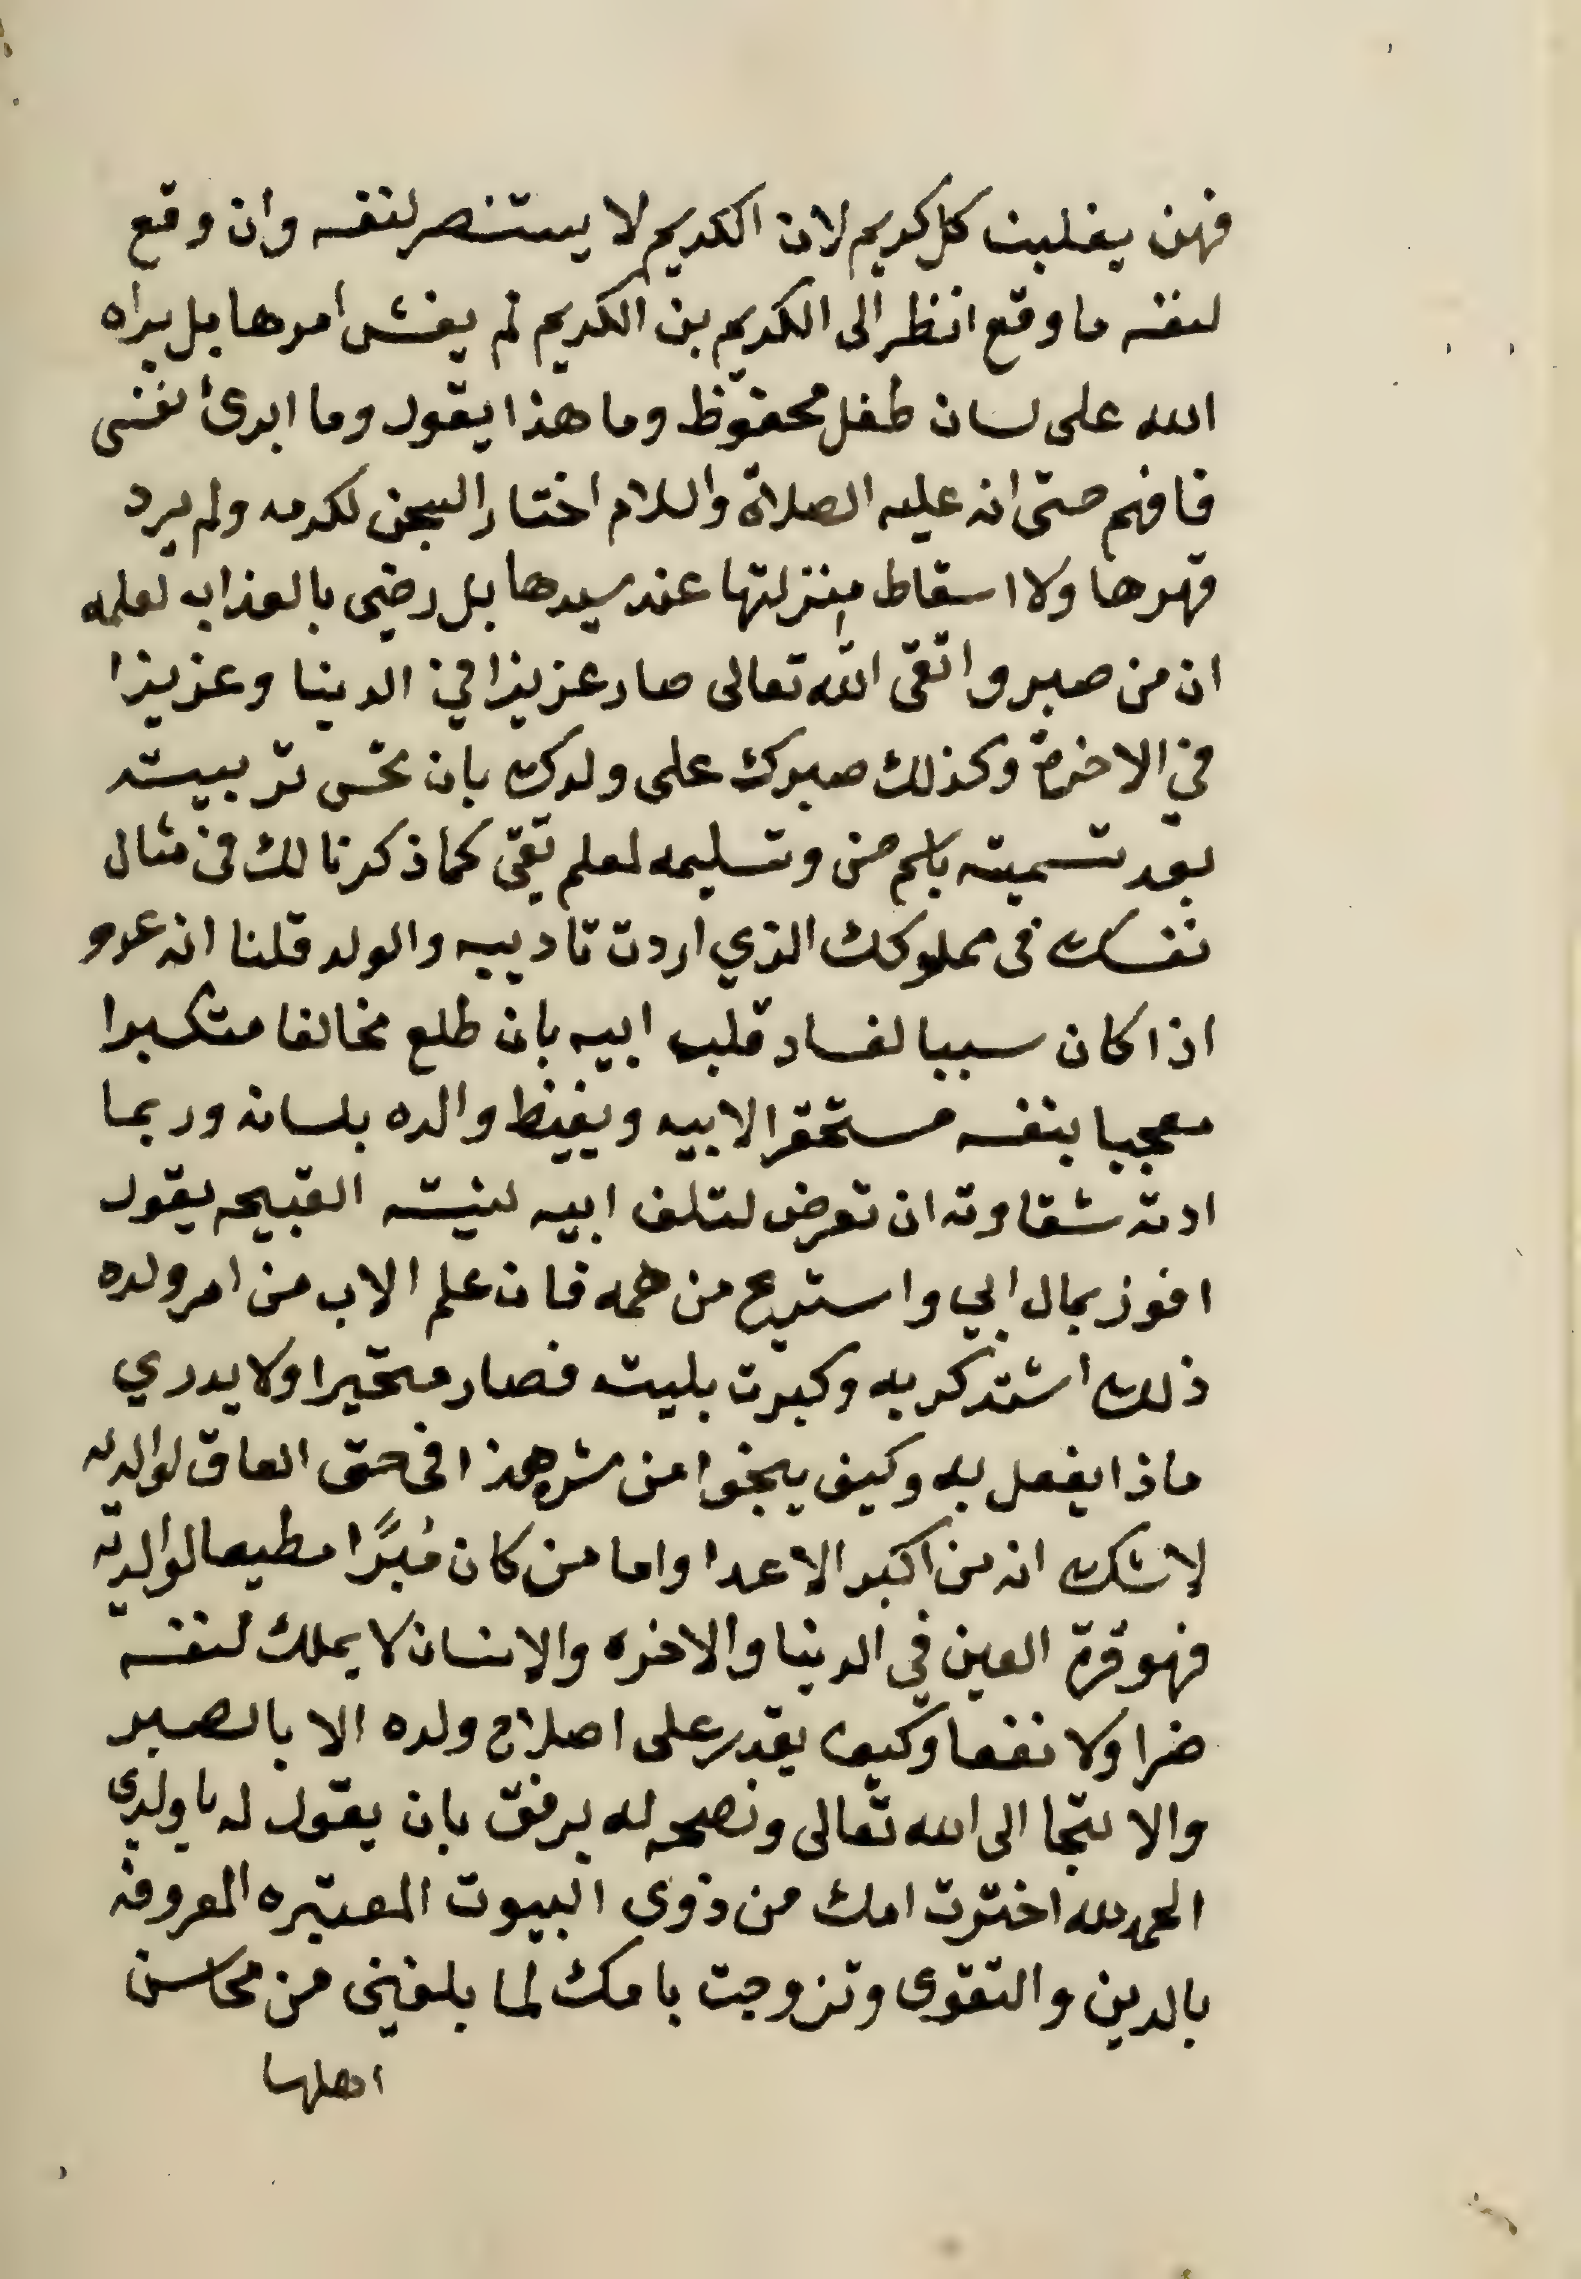 فهن يغلبن كل كريم لان الكريم لا يستنصر لنفسه وان وقع
لنفسه ما وقع انظر الى الكريم بن الكريم لم يفش امرها بل براه
الله على لسان طفل محفوظ وما هذا يقول وما ابرئ نفسى
فافهم حتى انه عليه الصلاة والسلام اختار السجن لكرمه ولم يرد
قهرها ولا اسقاط منزلتها عند سيدها بل رضى بالعذاب لعلمه
ان من صبر واتقى الله تعالى صار عزيزا في الدينا وعزيزا
في الاخرة وكذلك صبرك على ولدك بان تحسن تربيته
بعد تسميته باسم حسن وتسليمه لمعلم تقى كما ذكرنا لك فى مثال
نفسك فى مملوكك الذي اردت تاديبه والولد قلنا انه عدو
اذا كان سببا لفساد قلب ابيه بان طلع مخالفا متكبرا
معجبا بنفسه مستحقرا لابيه ويغيظ والده بلسانه وربما
ادته شقاوته ان تعرض لتلف ابيه لنيته القبيحه يقول
افوز بمال ابي واستريح من همه فان علم الاب من امر ولده
ذلك اشتد كربه وكبرت بليته فصار متحيرا ولا يدري
ماذا يفعل به وكيف ينجوا من شره هذا فى حق العاق لوالديه
لا شك انه من اكبر الاعدا واما من كان مُبرًّا مطيعا لوالديه
فهو قرة العين في الدينا والاخره والانسان لا يملك لنفسه
ضرا ولا نفعا وكيف يقدر على اصلاح ولده الا بالصبر
والالتجا الى الله تعالى ونصحه له برفق بان يقول له يا ولدى
الحمد لله اخترت امك من ذوى البيوت المعتبره المعروفه
بالدين والتقوى وتزوجت بامك لما بلغنى من محاسن
اهلها